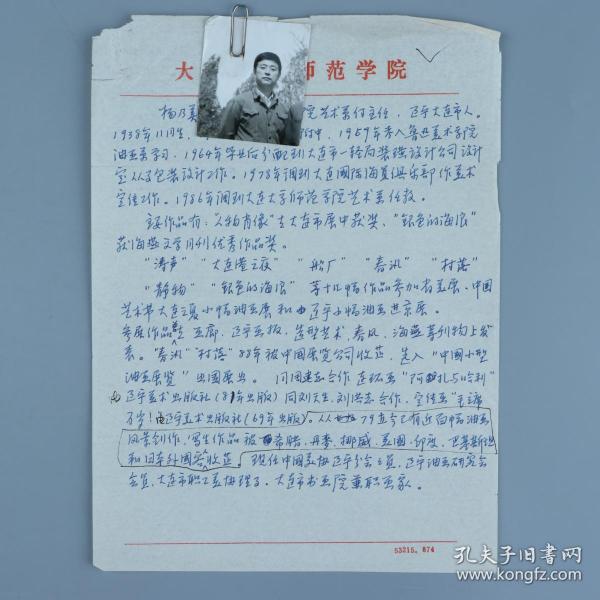 大 师范学院
杨乃 院艺术系付主任，辽宁大连市人。
1938年11月生， 附中，1959年考入鲁迅美术学院
油画系学习，1964年毕业后分配到大连市一轻局装潢设计公司设计
室从事包装设计工作。1978年调到大连国际海员俱乐部作美术
宣传工作。1986年调到大连大学师范学院艺术系任教。
主要作品有："人物肖像"去大连市展中获奖、"银色的海浪"
获海燕文学月刊优秀作品奖。
"涛声" "大连港之夜" "船厂" "春汛" "村落"
"静物" "银色的海浪" 等十几幅作品参加省美展、中国
艺术节大连之夏小幅油画展和 辽宁小幅油画进京展。
参展作品 画廊、辽宁画报、造型艺术、春风、海燕等刊物上发
表。"春汛""村落"88年被中国展览公司收藏，选入"中国小型
油画展览"出国展出。 合作连环画"阿 扎与哈利"
由辽宁美术出版社（81年出版）同刘天生、刘洪志合作，宣传画"毛主席
万岁！由辽宁美术出版社（69年出版）。从 79年至今已有近百幅油画
风景创作，写生作品被 希腊、丹麦、挪威、美国、印度、巴基斯坦
和日本外国客收藏。现任中国美协辽宁分会会员、辽宁油画研究会
会员、大连市职工美协理事、大连市书画院兼职画家。
53215。874
孔夫子旧书网
www.kongfz.com